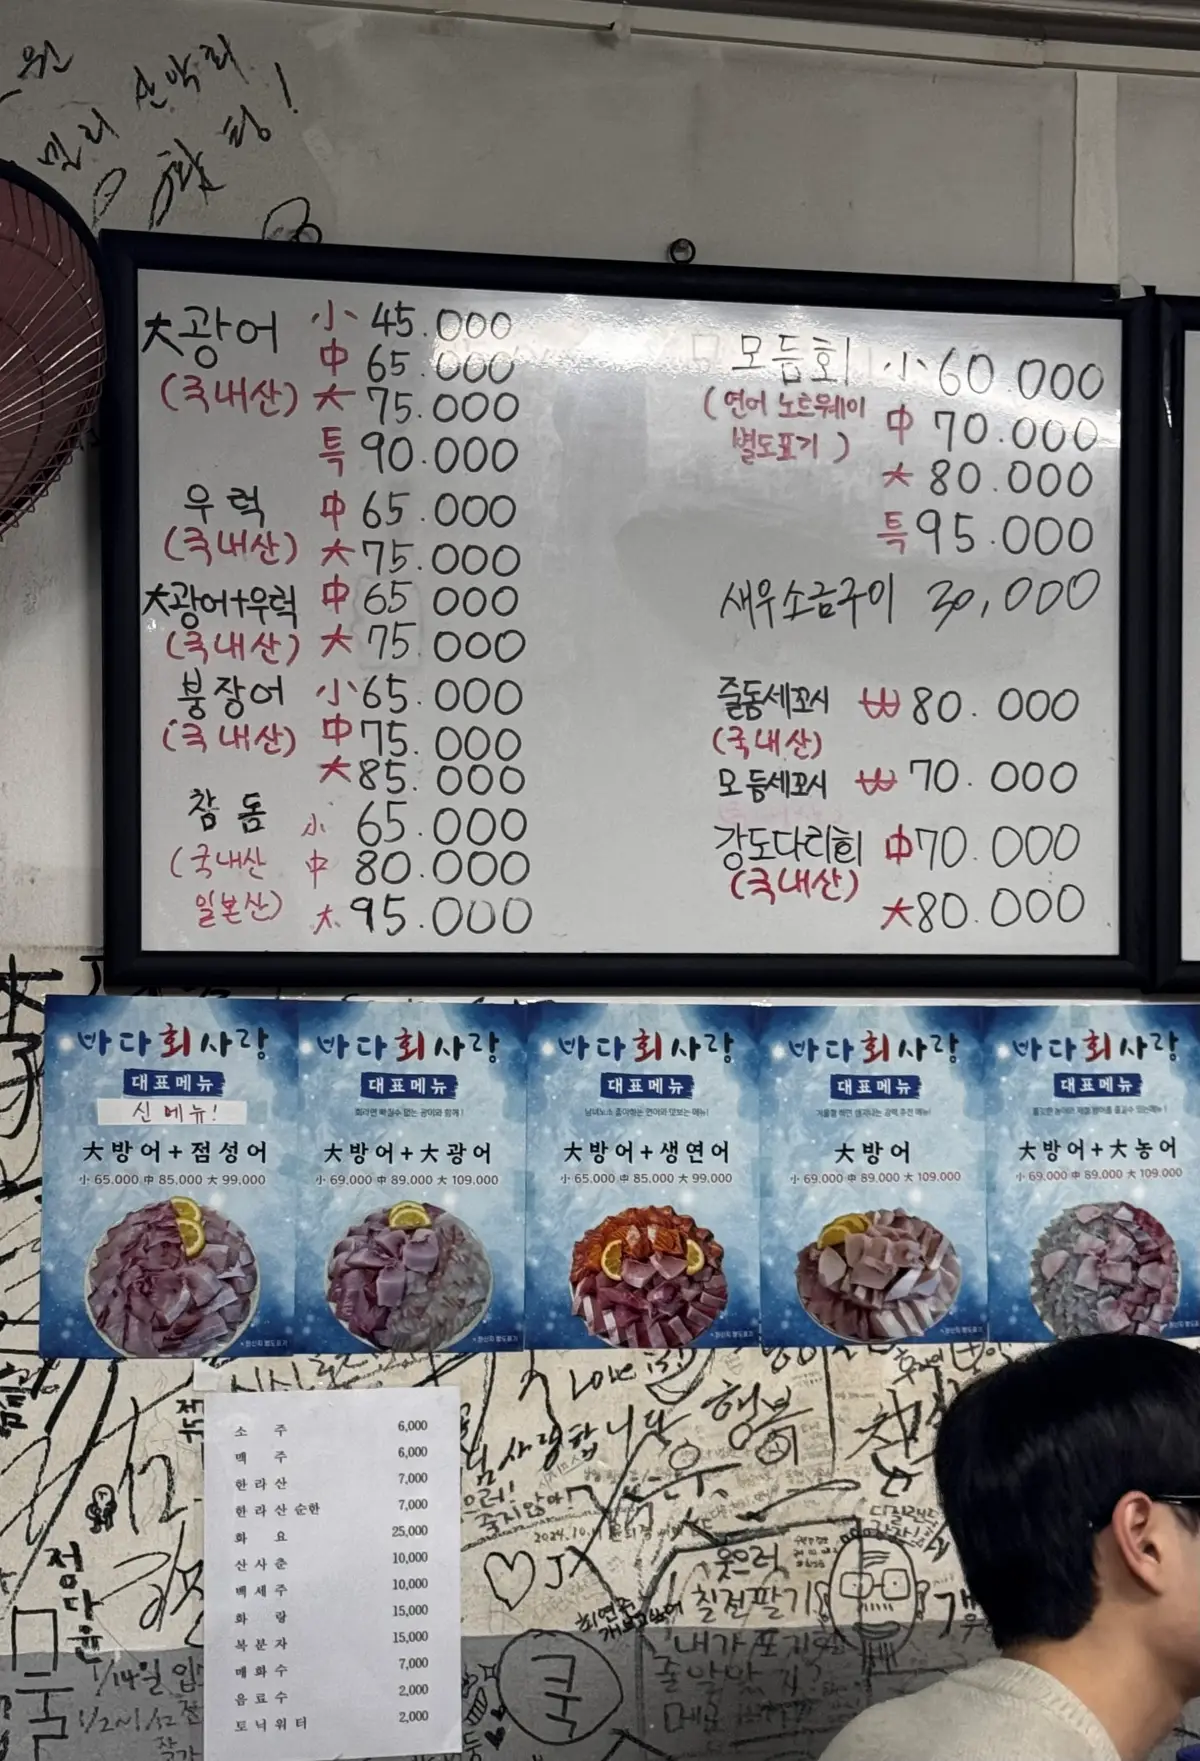 산악회
大광어 小 45.000
中 65.000
(국내산) 大 75.000
특 90.000
우럭 中 65.000
(국내산) 大 75.000
大광어+우럭 中 65 000
(국내산) 大 75.000
붕장어 小 65.000
(국내산) 中 75.000
大 85.000
참돔 小 65.000
(국내산 中 80.000
일본산) 大 95.000
모듬회 小 60.000
(연어 노르웨이 中 70.000
별도표기) 大 80.000
특 95.000
새우소금구이 30,000
줄돔세꼬시 ₩ 80.000
(국내산)
모듬세꼬시 ₩ 70.000
강도다리회 中 70.000
(국내산) 大 80.000
바다회사랑
대표메뉴
신메뉴!
大방어+점성어
小 65.000 中 85.000 大 99.000
바다회사랑
대표메뉴
大방어+大광어
小 69.000 中 89.000 大 109.000
바다회사랑
대표메뉴
남녀노소 좋아하는 연어와 맛보는 메뉴!
大방어+생연어
小 65.000 中 85.000 大 99.000
바다회사랑
대표메뉴
겨울철 하면 생각나는 강력 추천 메뉴!
大방어
小 69.000 中 89.000 大 109.000
바다회사랑
대표메뉴
大방어+大농어
小 69.000 中 89.000 大 109.000
소주 6,000
맥주 6,000
한라산 7,000
한라산순한 7,000
화요 25,000
산사춘 10,000
백세주 10,000
화랑 15,000
복분자 15,000
매화수 7,000
음료수 2,000
토닉워터 2,000
Love
행복
사랑합니다
2024.10.11
JX
웃으럭
칠전팔기
내가 포기
줄 알았지?
쿡
정다운
1/14일